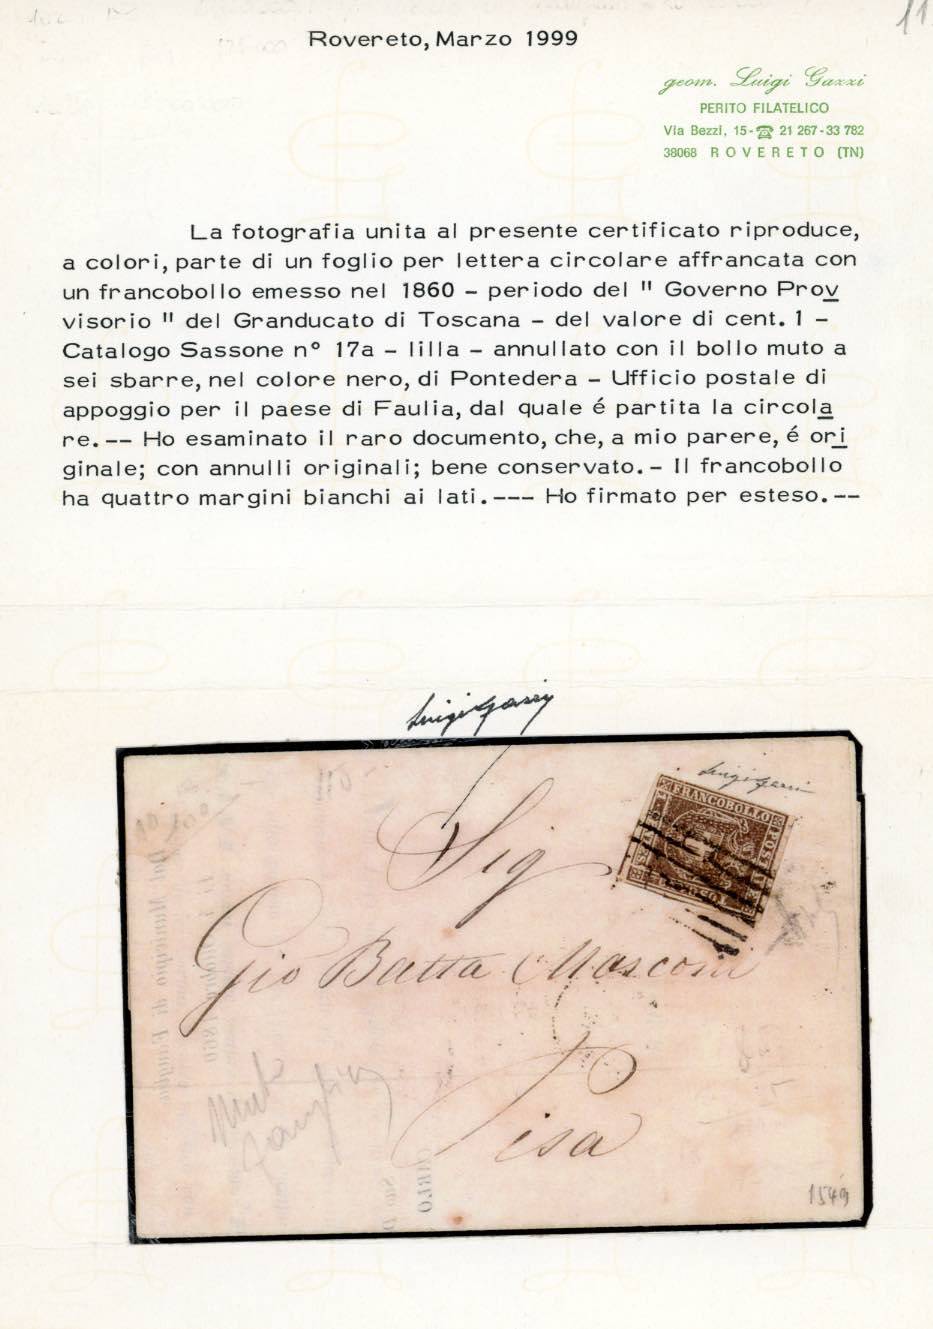 11
Rovereto, Marzo 1999
geom. Luigi Gazzi
PERITO FILATELICO
Via Bezzi, 15-☎ 21 267-33 782
38068 ROVERETO (TN)
La fotografia unita al presente certificato riproduce,
a colori, parte di un foglio per lettera circolare affrancata con
un francobollo emesso nel 1860 - periodo del " Governo Prov
visorio " del Granducato di Toscana - del valore di cent. 1 -
Catalogo Sassone n° 17a - lilla - annullato con il bollo muto a
sei sbarre, nel colore nero, di Pontedera - Ufficio postale di
appoggio per il paese di Faulia, dal quale é partita la circola
re.-- Ho esaminato il raro documento, che, a mio parere, é ori
ginale; con annulli originali; bene conservato.- Il francobollo
ha quattro margini bianchi ai lati.--- Ho firmato per esteso.--
Luigi Gazzi
Luigi Gazzi
FRANCOBOLLO
POSTALE
Sig
Gio Batta Masconi
Pisa
CARLO
1549